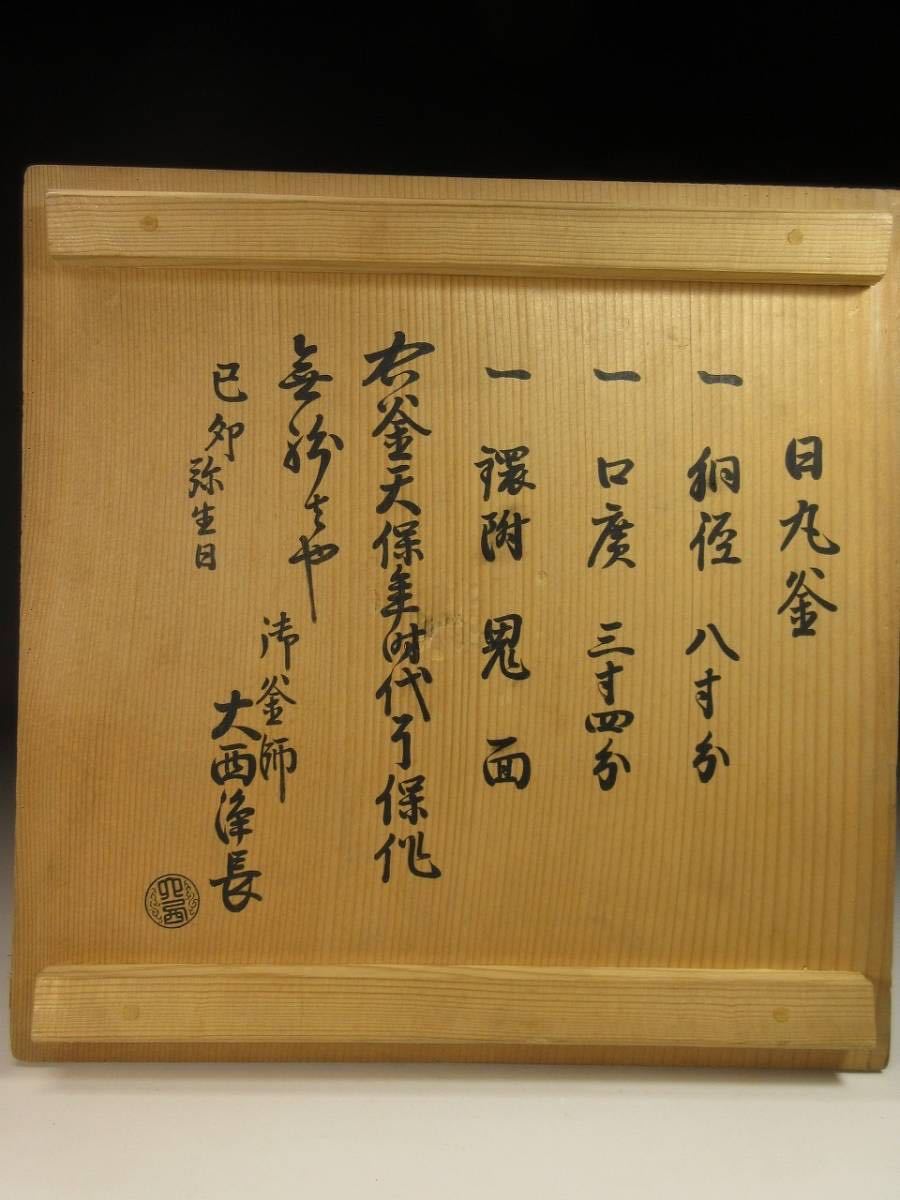 日丸釜
一 胴径 八寸分
一 口廣 三寸四分
一 環附 鬼面
右釜天保年时代了保作
無紛者也
御釜師
大西浄長
己卯弥生日
大西